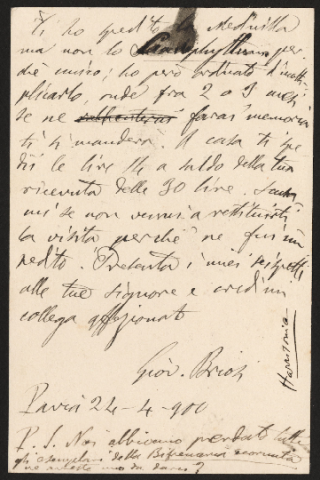 Ti ho spedito la Medinilla
ma non lo perchè
unico; ho però ordinato di molti-
plicarlo, onde fra 2 o 3 mesi
se ne farai memoria
ti si manderà. A casa ti spe
dii le lire 14 a saldo della tua
ricevuta delle 30 lire. Scusa
mi se non venni a restituirti
la visita perchè ne fui im
pedito. Presenta i miei rispetti
alle tue signore e credimi
collega affezionato
Giov. Briosi
Pavia 24-4-900
P. S. Noi abbiamo perduto tutti
gli esemplari della
ne avreste uno da darci?
Harrisonia